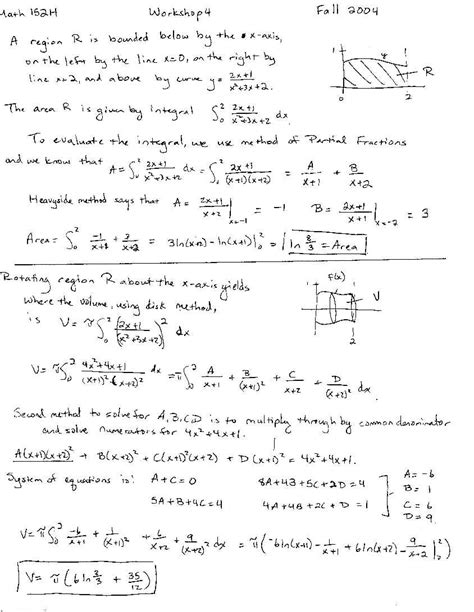 Math 152H Workshop 4 Fall 2004
A region R is bounded below by the x-axis,
on the left by the line x=0, on the right by
line x=2, and above by curve y = (2x+1)/(x²+3x+2).
1 1 R 0 2
The area R is given by integral ∫₀² (2x+1)/(x²+3x+2) dx.
To evaluate the integral, we use method of Partial Fractions
and we know that A = ∫₀² (2x+1)/(x²+3x+2) dx = ∫₀² (2x+1)/((x+1)(x+2)) = A/(x+1) + B/(x+2)
Heavyside method says that A = (2x+1)/(x+2) |x=-1 = -1 B = (2x+1)/(x+1) |x=-2 = 3
Area = ∫₀² -1/(x+1) + 3/(x+2) = 3ln(x+2) - ln(x+1)|₀² = ln 8/3 = Area
Rotating region R about the x-axis yields
where the volume, using disk method,
is V = π∫₀² ((2x+1)/(x²+3x+2))² dx
f(x) 1 1 V 2
V = π∫₀² (4x²+4x+1)/((x+1)²(x+2)²) dx = π∫₀² A/(x+1) + B/(x+1)² + C/(x+2) + D/(x+2)² dx
Second method to solve for A,B,C,D is to multiply through by common denominator
and solve numerators for 4x²+4x+1.
A(x+1)(x+2)² + B(x+2)² + C(x+1)²(x+2) + D(x+1)² = 4x²+4x+1.
System of equations is: A+C=0 8A+4B+5C+2D=4 A=-6
B=1
5A+B+4C=4 4A+4B+2C+D=1 C=6
D=9
V = π∫₀² -6/(x+1) + 1/(x+1)² + 6/(x+2) + 9/(x+2)² dx = π(-6ln(x+1) - 1/(x+1) + 6ln(x+2) - 9/(x+2)|
V = π(6ln 2/3 + 35/12)